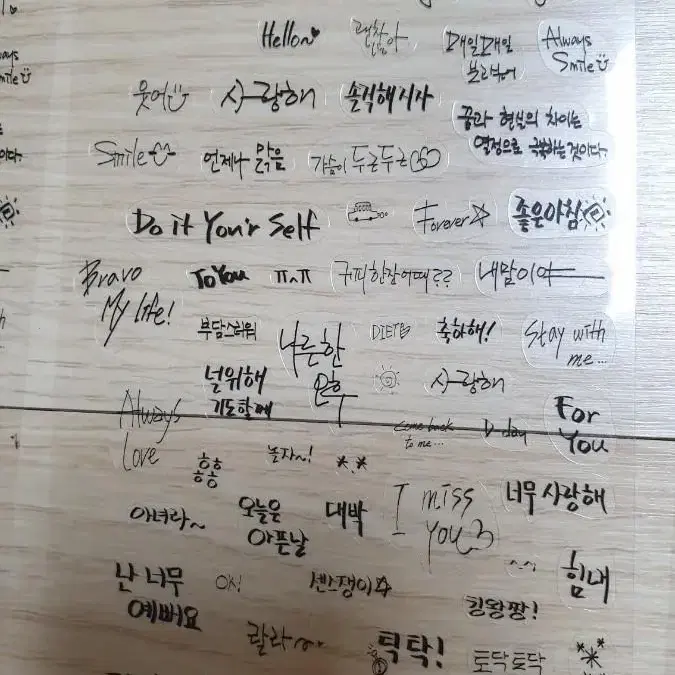 Hello
괜찮아
매일매일
보고싶어
Always
Smile
웃어
사랑해
솔직해시자
꿈과 현실의 차이는
열정으로 극복하는것이다.
Smile
언제나 맑음
가슴이 두근두근
Do it Your Self
Forever
좋은아침
Bravo
My life!
To You
ㅠ^ㅠ
커피한잔어때??
내말이야
부담스러워
나른한
오후
DIET
축하해!
Stay with
me...
널위해
기도할께
사랑해
Always
Love
come back
to me...
D-day
For
You
흥흥
흥흥
놀자~!
*.*
I miss
You
너무 사랑해
아녀라~
오늘은
아픈날
대박
^^
힘내
난 너무
예뻐요
OK!
반쟁이
킹왕짱!
랄라~
틱탁!
토닥토닥